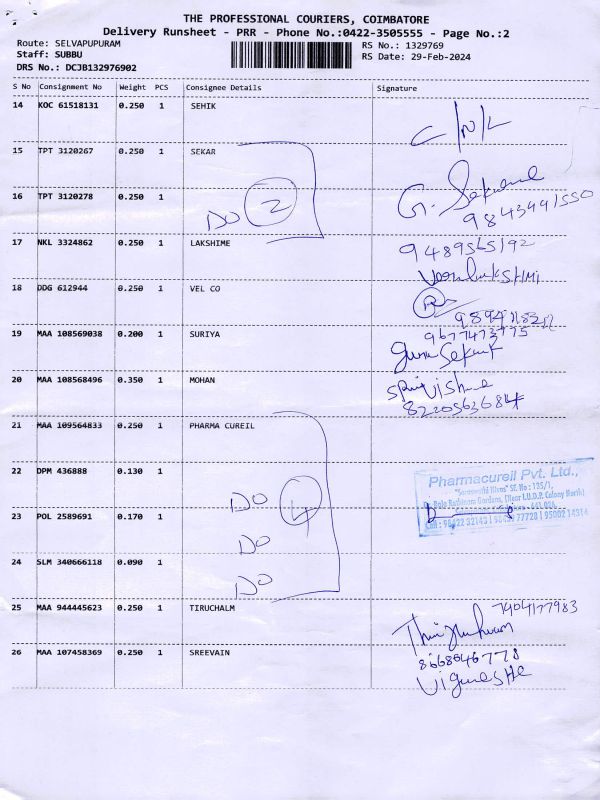 THE PROFESSIONAL COURIERS, COIMBATORE
Delivery Runsheet - PRR - Phone No.:0422-3505555 - Page No.:2
Route: SELVAPUPURAM
Staff: SUBBU
DRS No.: DCJB132976902
RS No.: 1329769
RS Date: 29-Feb-2024
S No Consignment No Weight PCS Consignee Details Signature
14 KOC 61518131 0.250 1 SEHIK
C/N/L
15 TPT 3120267 0.250 1 SEKAR
16 TPT 3120278 0.250 1
DO 2
G. Sekar
17 NKL 3324862 0.250 1 LAKSHIME
9489565192
18 DDG 612944 0.250 1 VEL CO
19 MAA 108569038 0.200 1 SURIYA
9677473775
20 MAA 108568496 0.350 1 MOHAN
8220563684
21 MAA 109564833 0.250 1 PHARMA CUREIL
22 DPM 436888 0.130 1
DO 4
Pharmacureil Pvt. Ltd.,
"Saraswathi Nivas" SF. No : 125/1,
Bala Rathinam Gardens, (Near I.U.D.P. Colony North)
23 POL 2589691 0.170 1
DO
24 SLM 340666118 0.090 1
DO
25 MAA 944445623 0.250 1 TIRUCHALM
7904177983
26 MAA 107458369 0.250 1 SREEVAIN
8668046778